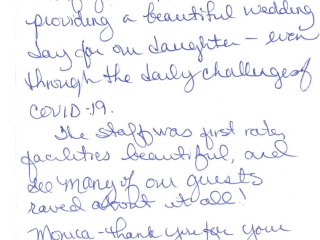 providing a beautiful wedding
day for our daughter - even
through the daily challenges of
COVID-19.
The staff was first rate,
facilities beautiful, and
many of our guests
raved about it all!
Monica - thank you for your